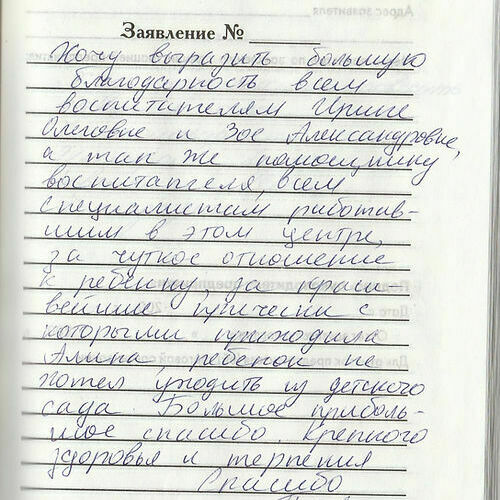 Заявление № ______
Хочу выразить большую
благодарность всем
воспитателям Ирине
Олеговне и Зое Александровне,
а так же помощнику
воспитателя, всем
специалистам работав-
шим в этом центре,
за чуткое отношение
к ребенку за краси
вейшие прически с
которыми приходила
Алина, ребенок не
хотел уходить из детского
сада. Большое приболь-
шое спасибо. Крепкого
здоровья и терпения
Спасибо